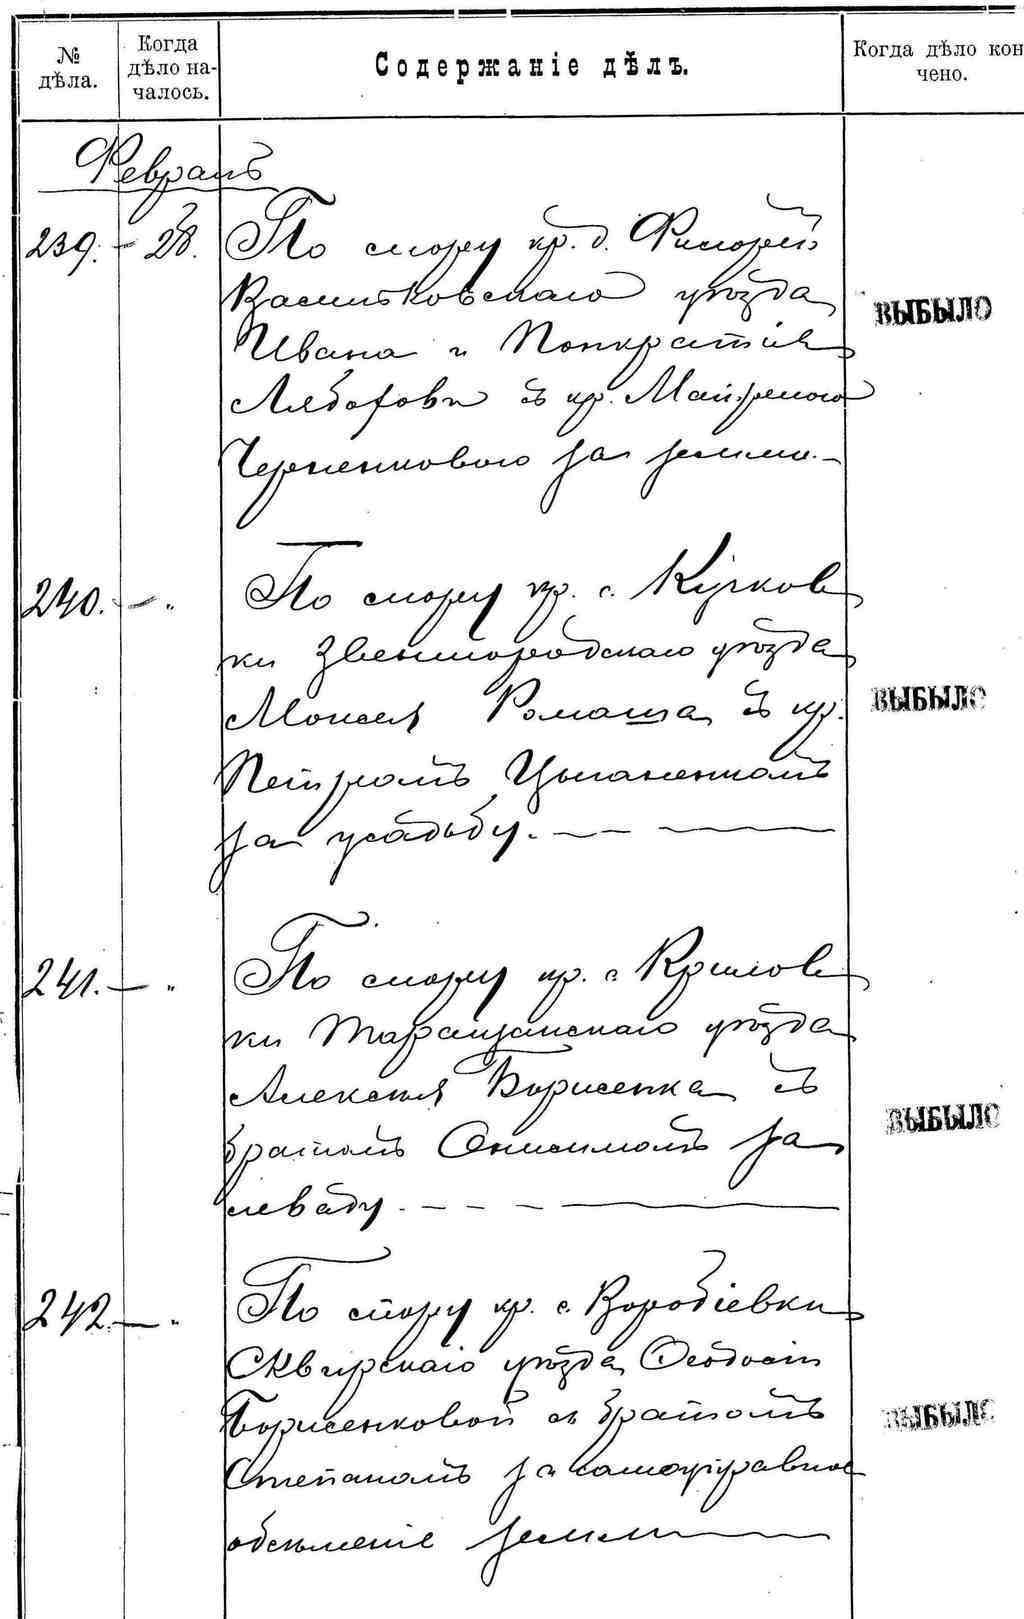 № дѣла.
Когда дѣло началось.
Содержаніе дѣлъ.
Когда дѣло кончено.
Февраль
239. - 28. По спору кр. д.
Васильковскаго уѣзда
Ивана и Понкратія
съ кр.
за землю. -
ВЫБЫЛО
240. - " По спору кр. с. Кучков
ки Звенигородскаго уѣзда
Моисея Ромаша съ кр.
Петромъ Цыганенкомъ
за усадьбу. - - -
ВЫБЫЛО
241. - " По спору кр. с. Крилов
ки Таращанскаго уѣзда
Алексѣя Борисенка съ
братомъ Онисимомъ за
леваду. - - - -
ВЫБЫЛО
242 - " По спору кр. с. Воробіевки
Сквирскаго уѣзда Ѳеодосіи
Борисенковой съ братомъ
Степаномъ за самоуправное
землею
ВЫБЫЛО